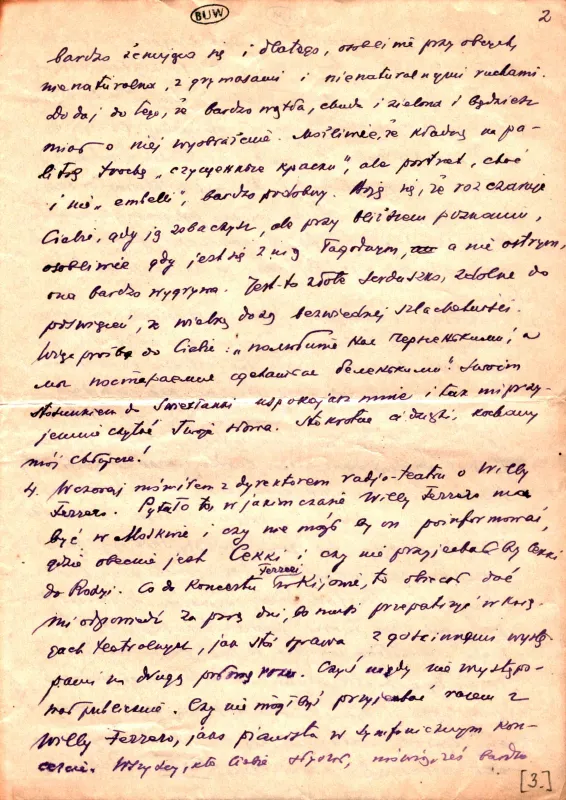 BUW
2
bardzo żenująca się i dlatego, osobliwie przy obcych,
nienaturalna, z grymasami i nienaturalnymi ruchami.
Dodaj do tego, że bardzo wątła, chuda i zielona i będziesz
miał o niej wyobrażenie. Możliwie, że kładę na pa-
letę trochę „сгущенные краски”, ale portret, choć
i nie „embelli”, bardzo podobny. Boję się, że rozczaruje
Ciebie, gdy ją zobaczysz, ale przy bliższem poznaniu,
osobliwie gdy jest się z nią łagodnym, a nie ostrym,
ona bardzo wygrywa. Jest to złote serduszko, zdolne do
poświęceń, z wielką dozą bezwiednej szlachetności.
Więc prośba do Ciebie: „полюбите нас черненькими, а
мы постараемся сделаться беленькими”. Swoim
stosunkiem do Swietłanki uspokajasz mnie i tak mi przy-
jemnie czytać Twoje słowa. Stokrotne ci dzięki, kochany
mój chłopcze!
4. Wczoraj mówiłem z dyrektorem radjo-teatru o Willy
Ferrero. Pytał o to, w jakim czasie Willy Ferrero ma
być w Moskwie i czy nie mógłby on poinformować,
gdzie obecnie jest Cekki i czy nie przyjechałby Cekki
do Rosji. Co do koncertu Ferreri w Kijowie, to obiecał dać
mi odpowiedź za parę dni, bo musi przepatrzyć w księ-
gach teatralnych, jak stoi sprawa z gościnnymi wystę-
pami na drugą połowę roku. Czyś nigdy nie występo-
wał publicznie. Czy nie mógłbyś przyjechać razem z
Willy Ferrero, jako pianista w symfonicznym kon-
cercie. Wszyscy, kto Ciebie słyszał, mówią, żeś bardzo
[3.]